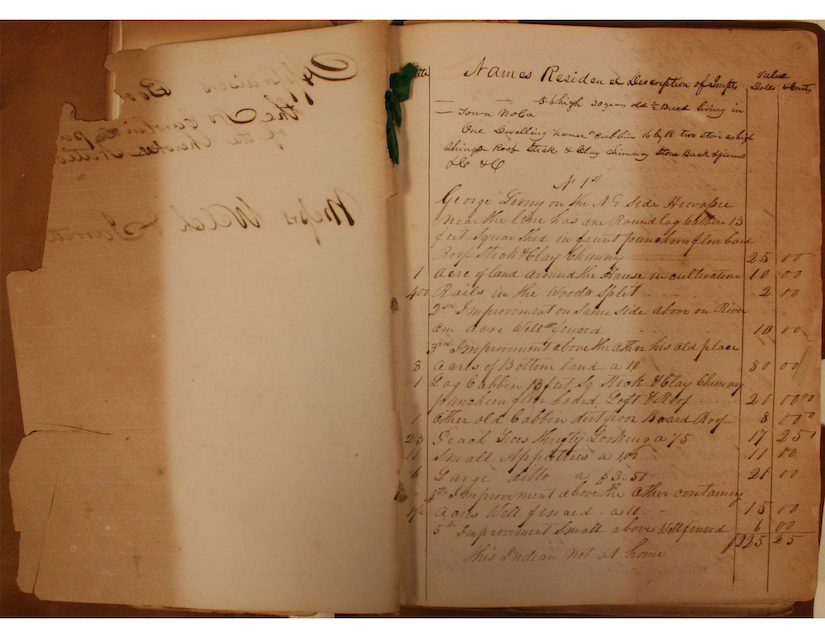 Appraisors Boo
the N Carolina po
of the Cherokee Natio
Messrs Welch & Jarrett
Names Residence & Description of Impts Value
Dolls & Cents
5-6 high 30 years old ½ Breed living in
Town No Ca
One Dwelling house Cabbin 16 by 18 two stories high
Shingle Roof Stick & Clay chimney Stone Back & jams
&c &c
No 1st
George Living on the N E Side Hewassee
near the line has one Round log Cabbin 13
feet Square Shed in front puncheon floor board
Roof Stick & Clay Chimny 25 00
1 Acre of land around the House in cultivation 10 00
400 Rails in the Woods Split 2 00
2nd Improvement on same side above on River
one acre Well fenced 10 00
3rd Improvement above the other his old place
8 Acres of Bottom land a 10 80 00
1 Log Cabbin 13 feet Sq Stick & Clay Chimny
puncheon floor boded Loft & Roof 20 00
1 Other old Cabbin dirt floor Board Roof 8 00
23 Peach Trees thrifty Looking a 75 17 25
11 Small Appletrees a 100 11 00
6 Large ditto a $3.50 21 00
4th Improvement above the other containing
1½ Acres Well fenced a 10 15 00
5th Improvement Small above Well fenced 6 00
$225 25
this Indian not at home